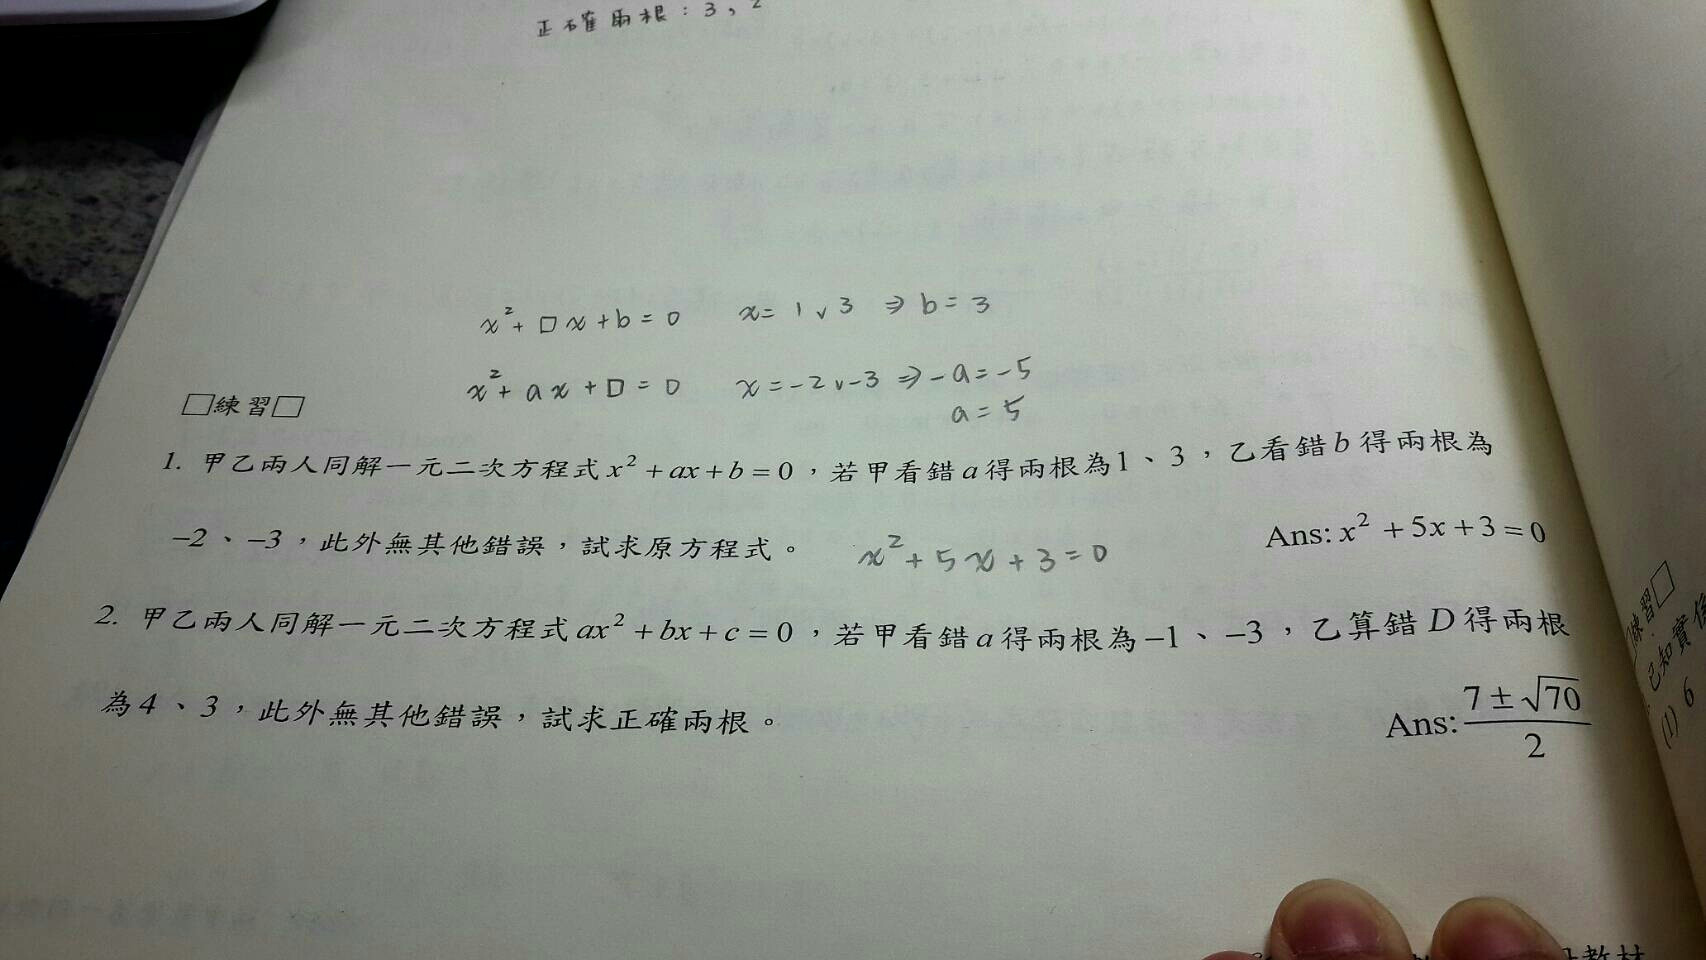 正確兩根:3,2
x²+□x+b=0 x=1∨3 ⇒b=3
x²+ax+□=0 x=-2∨-3⇒-a=-5
a=5
□練習□
1. 甲乙兩人同解一元二次方程式x²+ax+b=0,若甲看錯a得兩根為1、3,乙看錯b得兩根為
-2、-3,此外無其他錯誤,試求原方程式。 x²+5x+3=0 Ans: x²+5x+3=0
2. 甲乙兩人同解一元二次方程式ax²+bx+c=0,若甲看錯a得兩根為-1、-3,乙算錯D得兩根
為4、3,此外無其他錯誤,試求正確兩根。 Ans: (7±√70)/2
練習□
已知實係
(1) 6